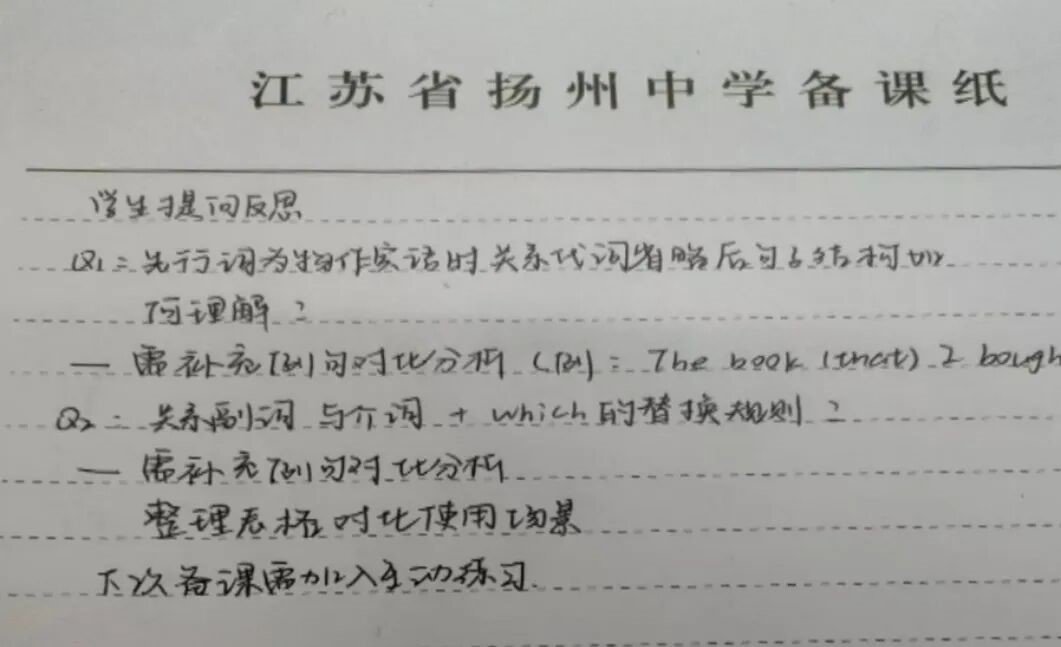 江苏省扬州中学备课纸
学生提问反思
Q1：先行词为物作宾语时关系代词省略后句子结构如
何理解？
— 需补充例句对比分析（例：The book (that) I bough
Q2：关系副词与介词 + which的替换规则？
— 需补充例句对比分析
整理表格对比使用场景
下次备课需加入互动练习.